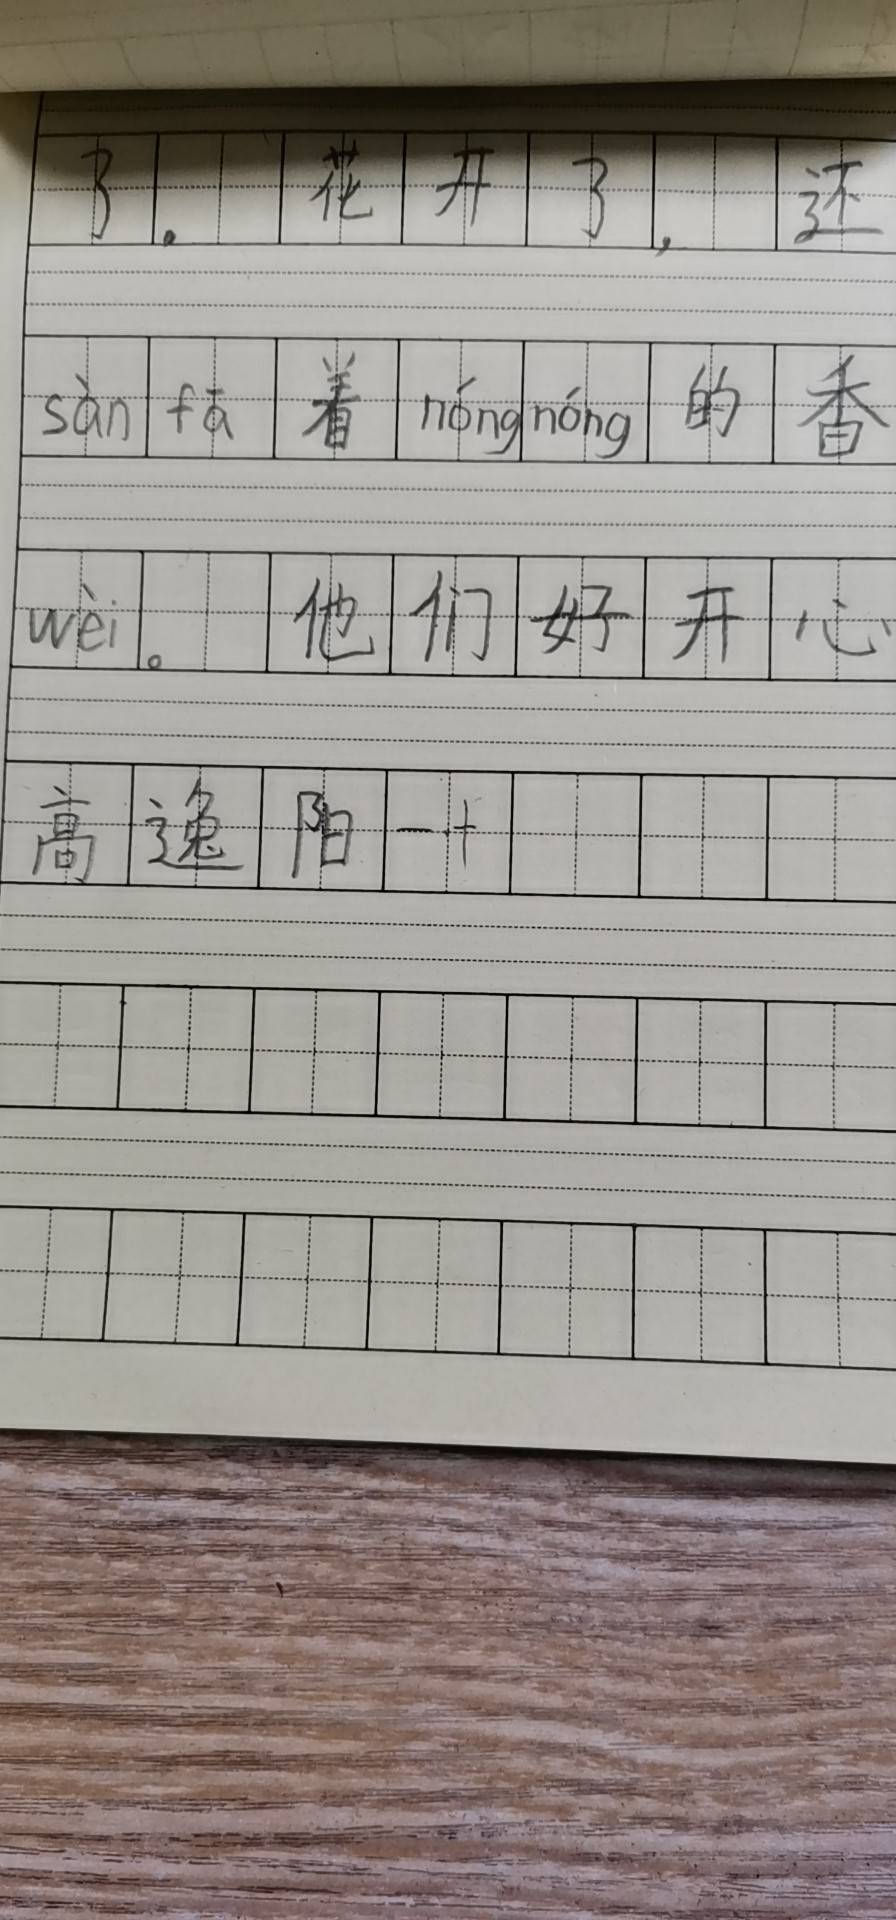 了。花开了,还
sàn fā 着 nóng nóng 的香
wèi。他们好开心
高逸阳一十